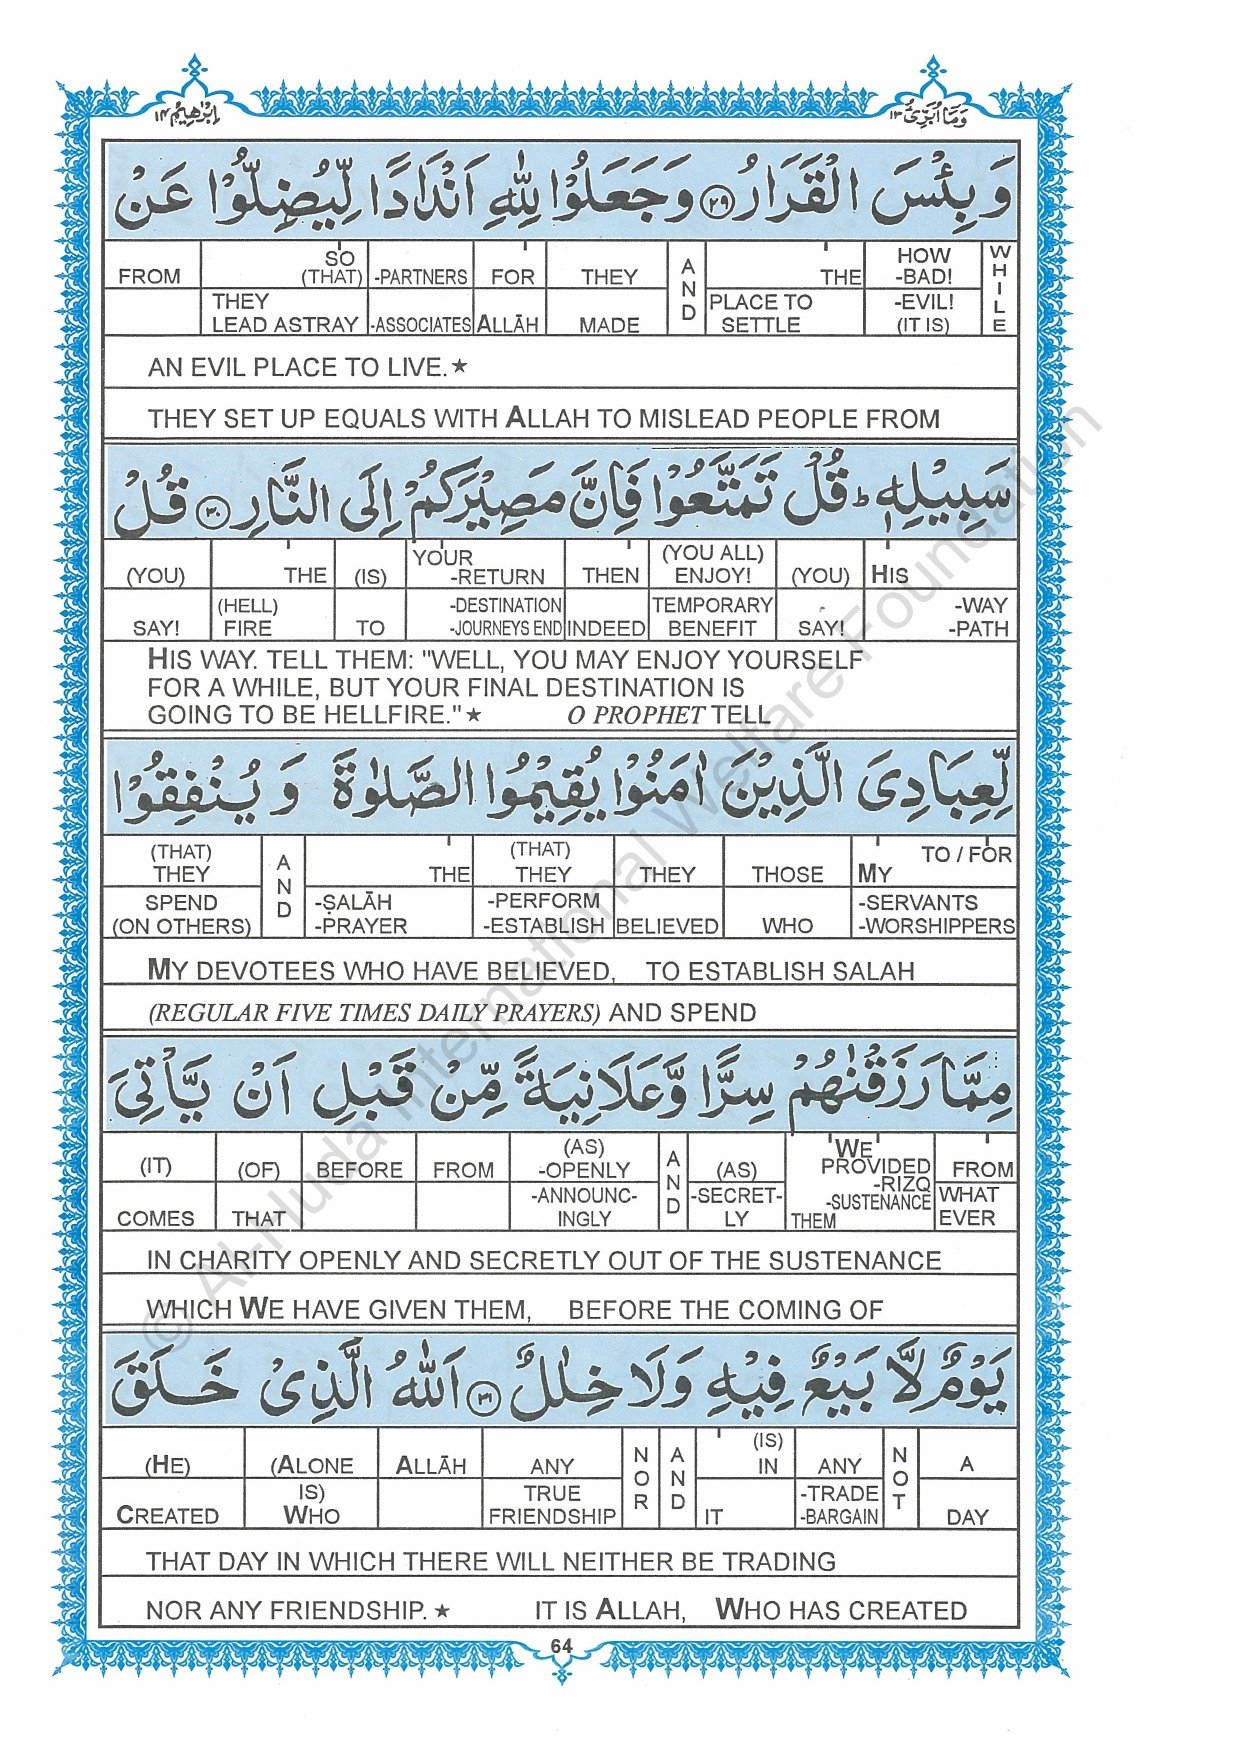 اِبْرٰهِيْمُ ١٤
وَمَآ اُبَرِّئُ ١٣
وَ بِئْسَ الْقَرَارُ ﴿٢٩﴾ وَ جَعَلُوْا لِلّٰهِ اَنْدَادًا لِّيُضِلُّوْا عَنْ
FROM SO (THAT) -PARTNERS FOR THEY AND THE HOW -BAD! WHILE
THEY LEAD ASTRAY -ASSOCIATES ALLĀH MADE PLACE TO SETTLE -EVIL! (IT IS)
AN EVIL PLACE TO LIVE.★
THEY SET UP EQUALS WITH ALLAH TO MISLEAD PEOPLE FROM
سَبِيْلِهٖ ؕ قُلْ تَمَتَّعُوْا فَاِنَّ مَصِيْرَكُمْ اِلَى النَّارِ ﴿٣٠﴾ قُلْ
(YOU) THE (IS) YOUR -RETURN THEN (YOU ALL) ENJOY! (YOU) HIS
SAY! (HELL) FIRE TO -DESTINATION -JOURNEYS END INDEED TEMPORARY BENEFIT SAY! -WAY -PATH
HIS WAY. TELL THEM: "WELL, YOU MAY ENJOY YOURSELF
FOR A WHILE, BUT YOUR FINAL DESTINATION IS
GOING TO BE HELLFIRE."★ O PROPHET TELL
لِّعِبَادِىَ الَّذِيْنَ اٰمَنُوْا يُقِيْمُوا الصَّلٰوةَ وَ يُنْفِقُوْا
(THAT) THEY AND THE (THAT) THEY THEY THOSE TO / FOR MY
SPEND (ON OTHERS) -ṢALĀH -PRAYER -PERFORM -ESTABLISH BELIEVED WHO -SERVANTS -WORSHIPPERS
MY DEVOTEES WHO HAVE BELIEVED, TO ESTABLISH SALAH
(REGULAR FIVE TIMES DAILY PRAYERS) AND SPEND
مِمَّا رَزَقْنٰهُمْ سِرًّا وَّ عَلَانِيَةً مِّنْ قَبْلِ اَنْ يَّاْتِىَ
(IT) (OF) BEFORE FROM (AS) -OPENLY AND (AS) WE PROVIDED -RIZQ FROM
COMES THAT -ANNOUNC-INGLY -SECRET-LY -SUSTENANCE THEM WHAT EVER
IN CHARITY OPENLY AND SECRETLY OUT OF THE SUSTENANCE
WHICH WE HAVE GIVEN THEM, BEFORE THE COMING OF
يَوْمٌ لَّا بَيْعٌ فِيْهِ وَلَا خِلٰلٌ ﴿٣١﴾ اَللّٰهُ الَّذِىْ خَلَقَ
(HE) (ALONE ALLĀH ANY NOR AND (IS) IN ANY NOT A
CREATED IS) WHO TRUE FRIENDSHIP IT -TRADE -BARGAIN DAY
THAT DAY IN WHICH THERE WILL NEITHER BE TRADING
NOR ANY FRIENDSHIP. ★ IT IS ALLAH, WHO HAS CREATED
64
© Al-Huda International Welfare Foundation